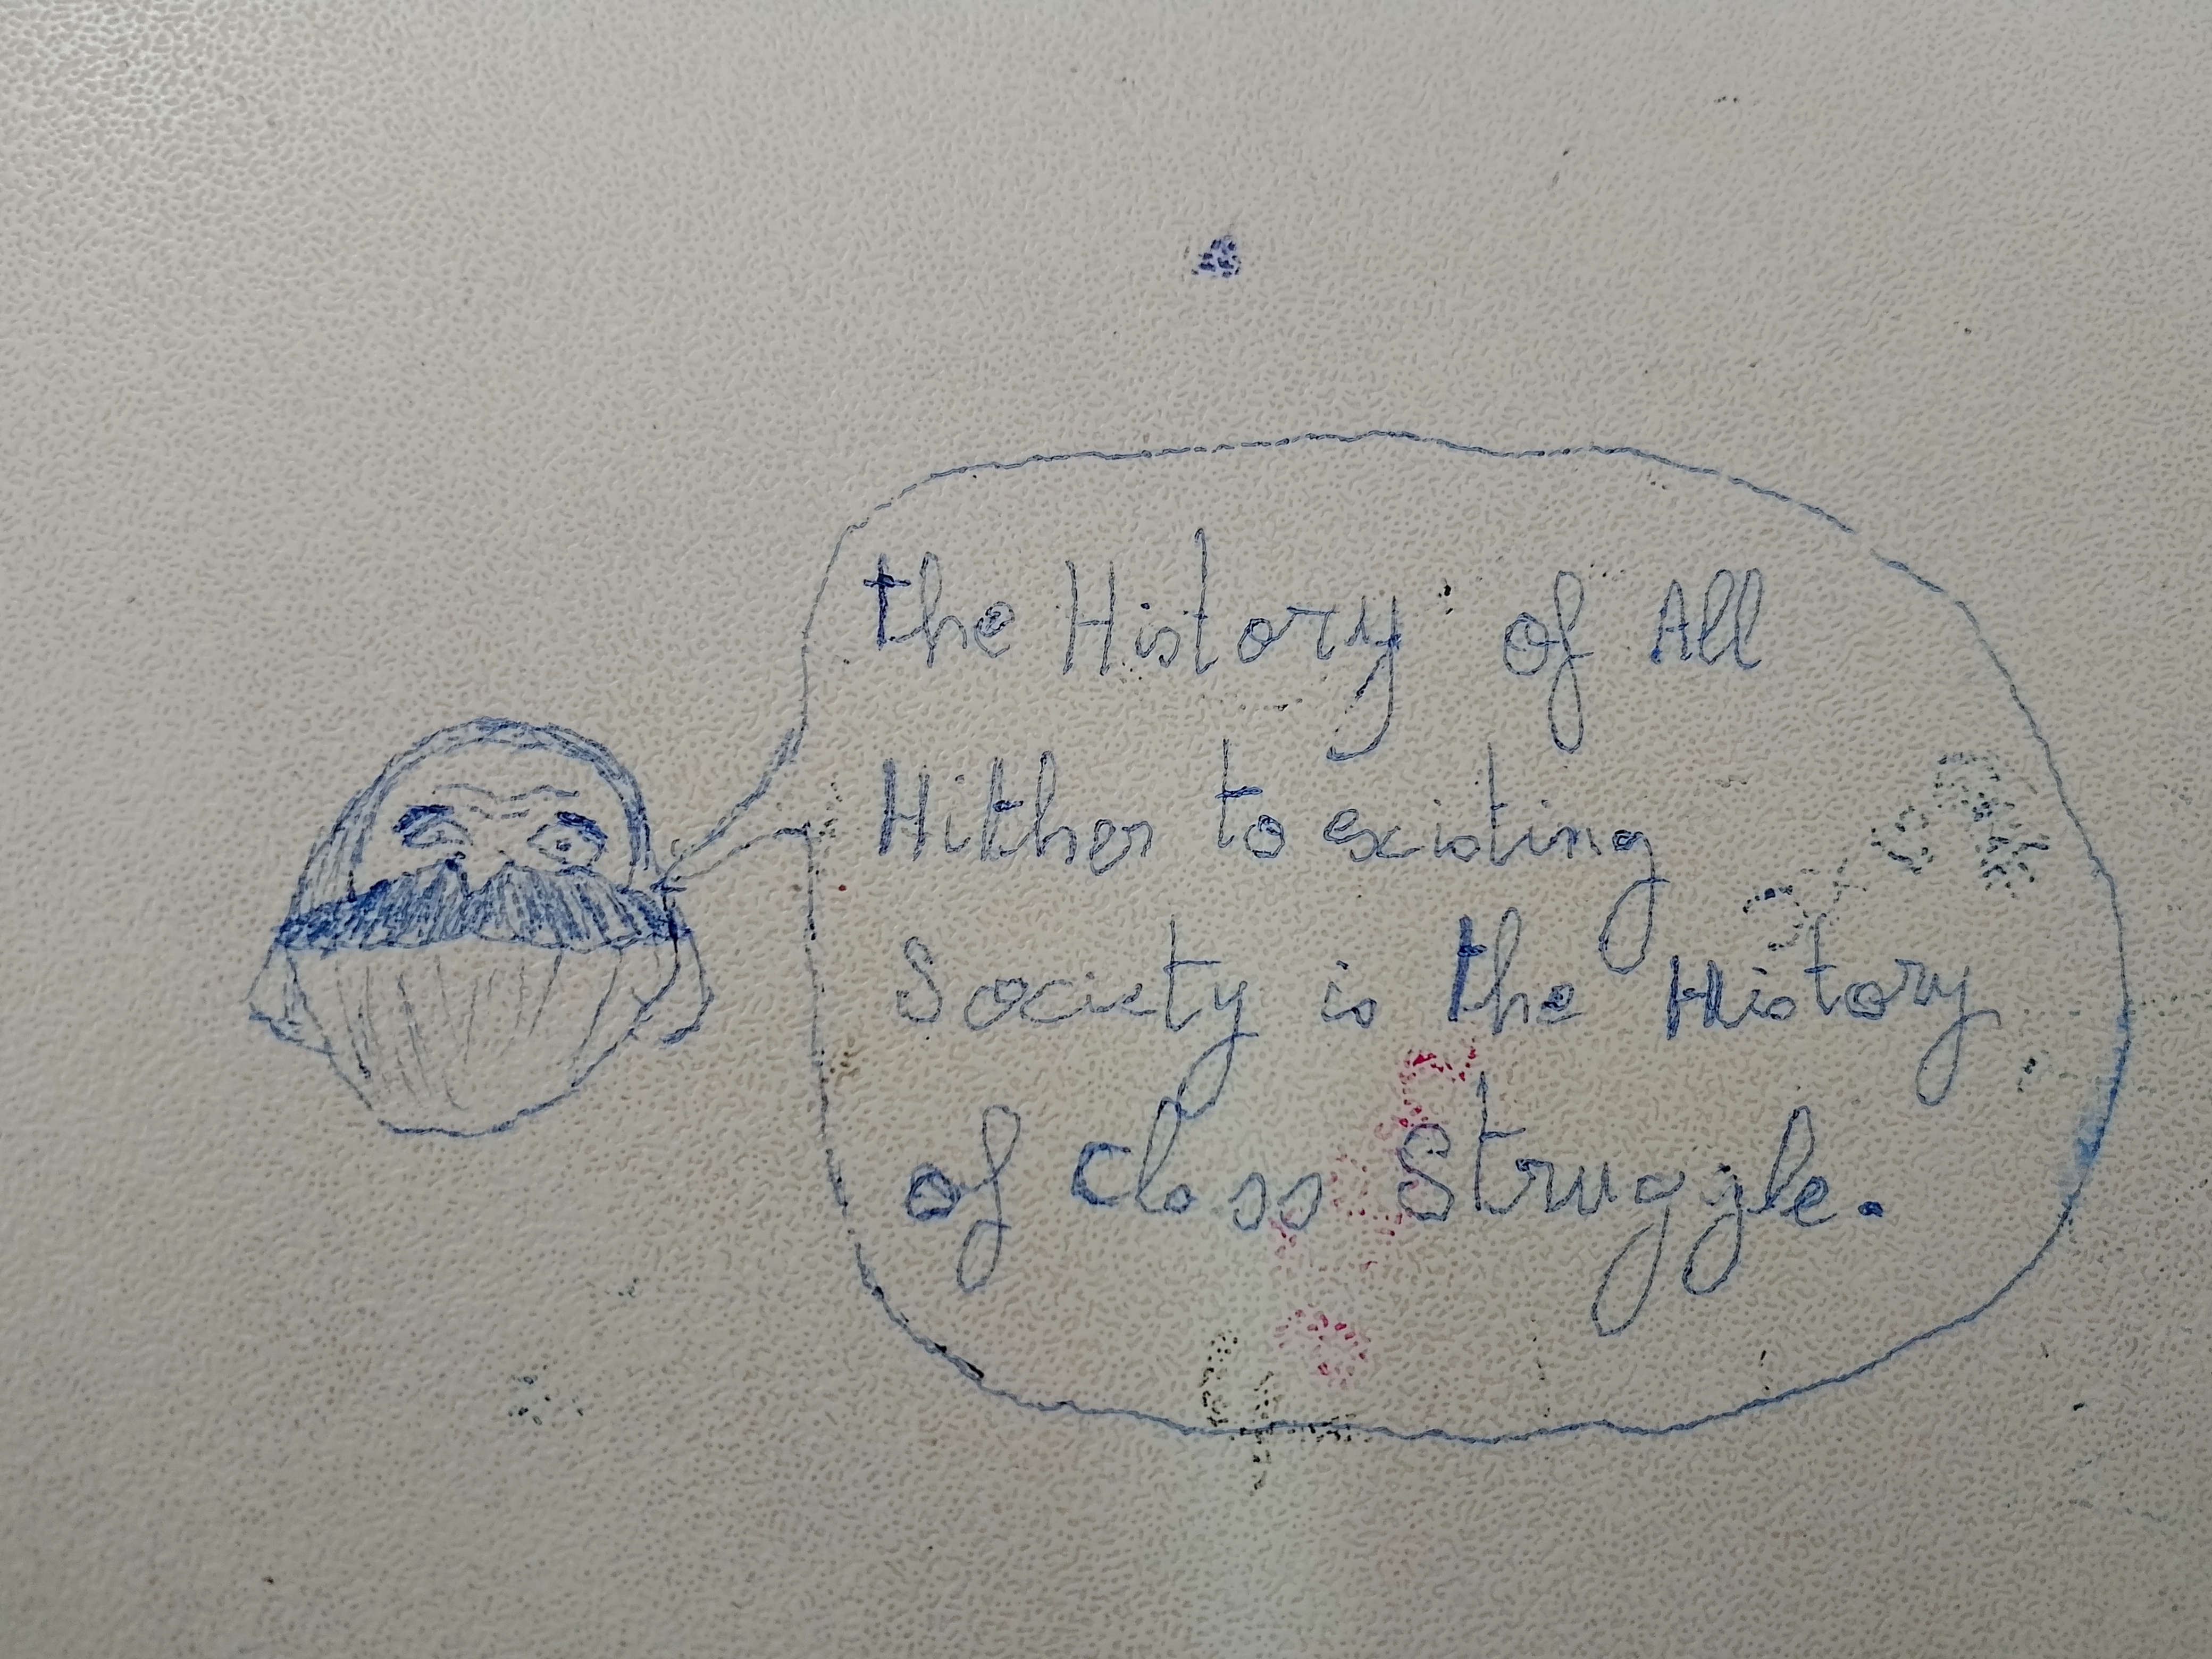 the History of All
Hither to existing
Society is the History
of Class Struggle.